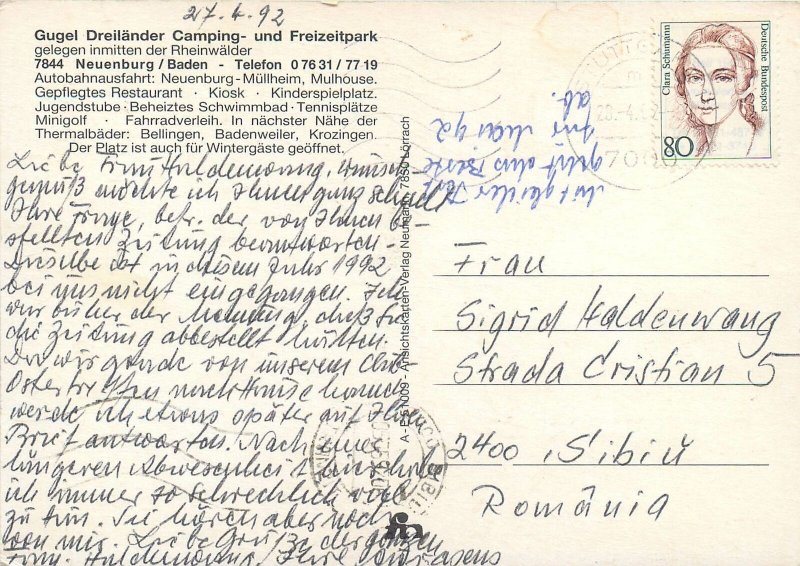 27.4.92
Gugel Dreiländer Camping- und Freizeitpark
gelegen inmitten der Rheinwälder
7844 Neuenburg/Baden - Telefon 07631/7719
Autobahnausfahrt: Neuenburg-Müllheim, Mulhouse.
Gepflegtes Restaurant · Kiosk · Kinderspielplatz.
Jugendstube · Beheiztes Schwimmbad · Tennisplätze
Minigolf · Fahrradverleih. In nächster Nähe der
Thermalbäder: Bellingen, Badenweiler, Krozingen.
Der Platz ist auch für Wintergäste geöffnet.
Liebe Frau Haldenwang,
möchte ich Ihnen ganz schnell
Ihre Frage, betr. der von Ihnen be-
stellten Zeitung beantworten.
Dieselbe ist in diesem Jahr 1992
bei uns nicht eingegangen. Ich
war bisher der Meinung, daß Sie
die Zeitung abbestellt hätten.
Da wir gerade von unserem
nach Hause kamen
werde ich etwas später auf Ihren
Brief antworten. Nach einer
längeren Abwesenheit
ich immer so schrecklich viel
zu tun. Sie hören aber noch
von mir. Liebe Grüße der ganzen
Fam. Haldenwang, Ihre
A - Ansichtskarten-Verlag Neumann, 7850 Lörrach
Mit gleicher Post
geht das Beste
für
ab.
Clara Schumann
Deutsche Bundespost
80
Frau
Sigrid Haldenwang
Strada Cristian 5
2400 Sibiu
România